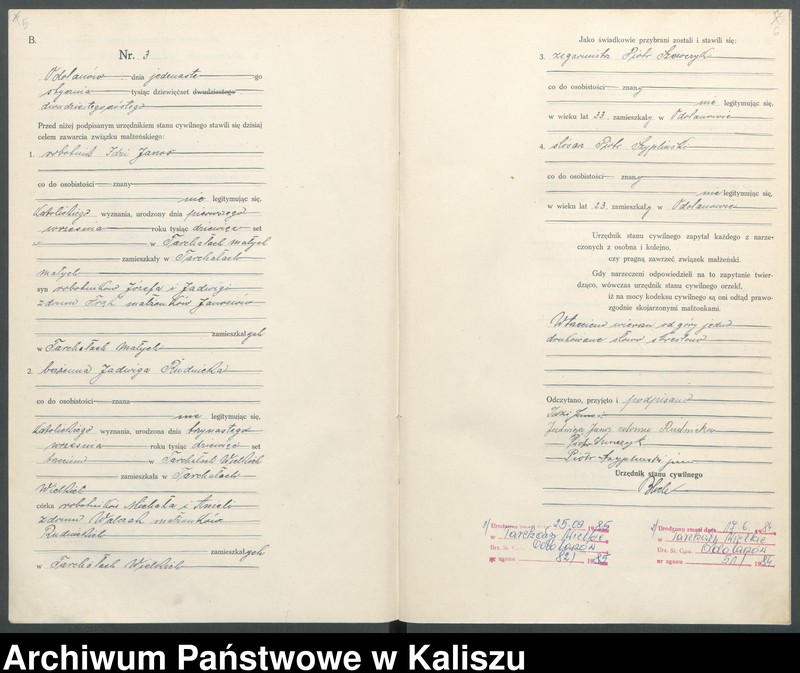 B.
Nr. 3
Odolanów dnia jedenaste go
stycznia tysiąc dziewięćset dwudziestego
dwudziestego
Przed niżej podpisanym urzędnikiem stanu cywilnego stawili się dzisiaj
celem zawarcia związku małżeńskiego:
1. robotnik Idzi Janoś
co do osobistości znany
nie legitymując się,
katolickiego wyznania, urodzony dnia pierwszego
września roku tysiąc dziewięć set
w Tarchałach małych
zamieszkały w Tarchałach
małych
syn robotników Józefa i Jadwigi
z domu małżonków
zamieszkałych
w Tarchałach Małych
2. bezżenna Jadwiga Rudnicka
co do osobistości znana
nie legitymując się,
katolickiego wyznania, urodzona dnia trzynastego
września roku tysiąc dziewięć set
trzeciego w Tarchałach Wielkich
zamieszkała w Tarchałach
Wielkich
córka robotników Michała i Anieli
z domu Walczak małżonków
Rudnickich
zamieszkałych
w Tarchałach Wielkich
6
Jako świadkowie przybrani zostali i stawili się:
3. zegarmistrz Piotr Szewczyk
co do osobistości znany
nie legitymując się,
w wieku lat 23. zamieszkały w Odolanowie
4. Piotr Szypliński
co do osobistości znany
nie legitymując się,
w wieku lat 23. zamieszkały w Odolanowie
Urzędnik stanu cywilnego zapytał każdego z narze-
czonych z osobna i kolejno,
czy pragną zawrzeć związek małżeński.
Gdy narzeczeni odpowiedzieli na to zapytanie twier-
dząco, wówczas urzędnik stanu cywilnego orzekł,
iż na mocy kodeksu cywilnego są oni odtąd prawo-
zgodnie skojarzonymi małżonkami.
W trzecim wierszu od góry jedno
drukowane słowo skreślono
Odczytano, przyjęto i podpisano
Idzi
Jadwiga z domu Rudnicka
Piotr Szewczyk
Piotr Szypliński
Urzędnik stanu cywilnego
1/ 25.09 1985
w Tarchały Wielkie
Urz. St. Cyw. Odolanów
nr zgonu 82/ 1985
2/ Urodzony zmarł dnia 17.6. 1984
w Tarchały Wielkie
Urz. St. Cyw. Odolanów
nr zgonu 51/ 1984
Archiwum Państwowe w Kaliszu